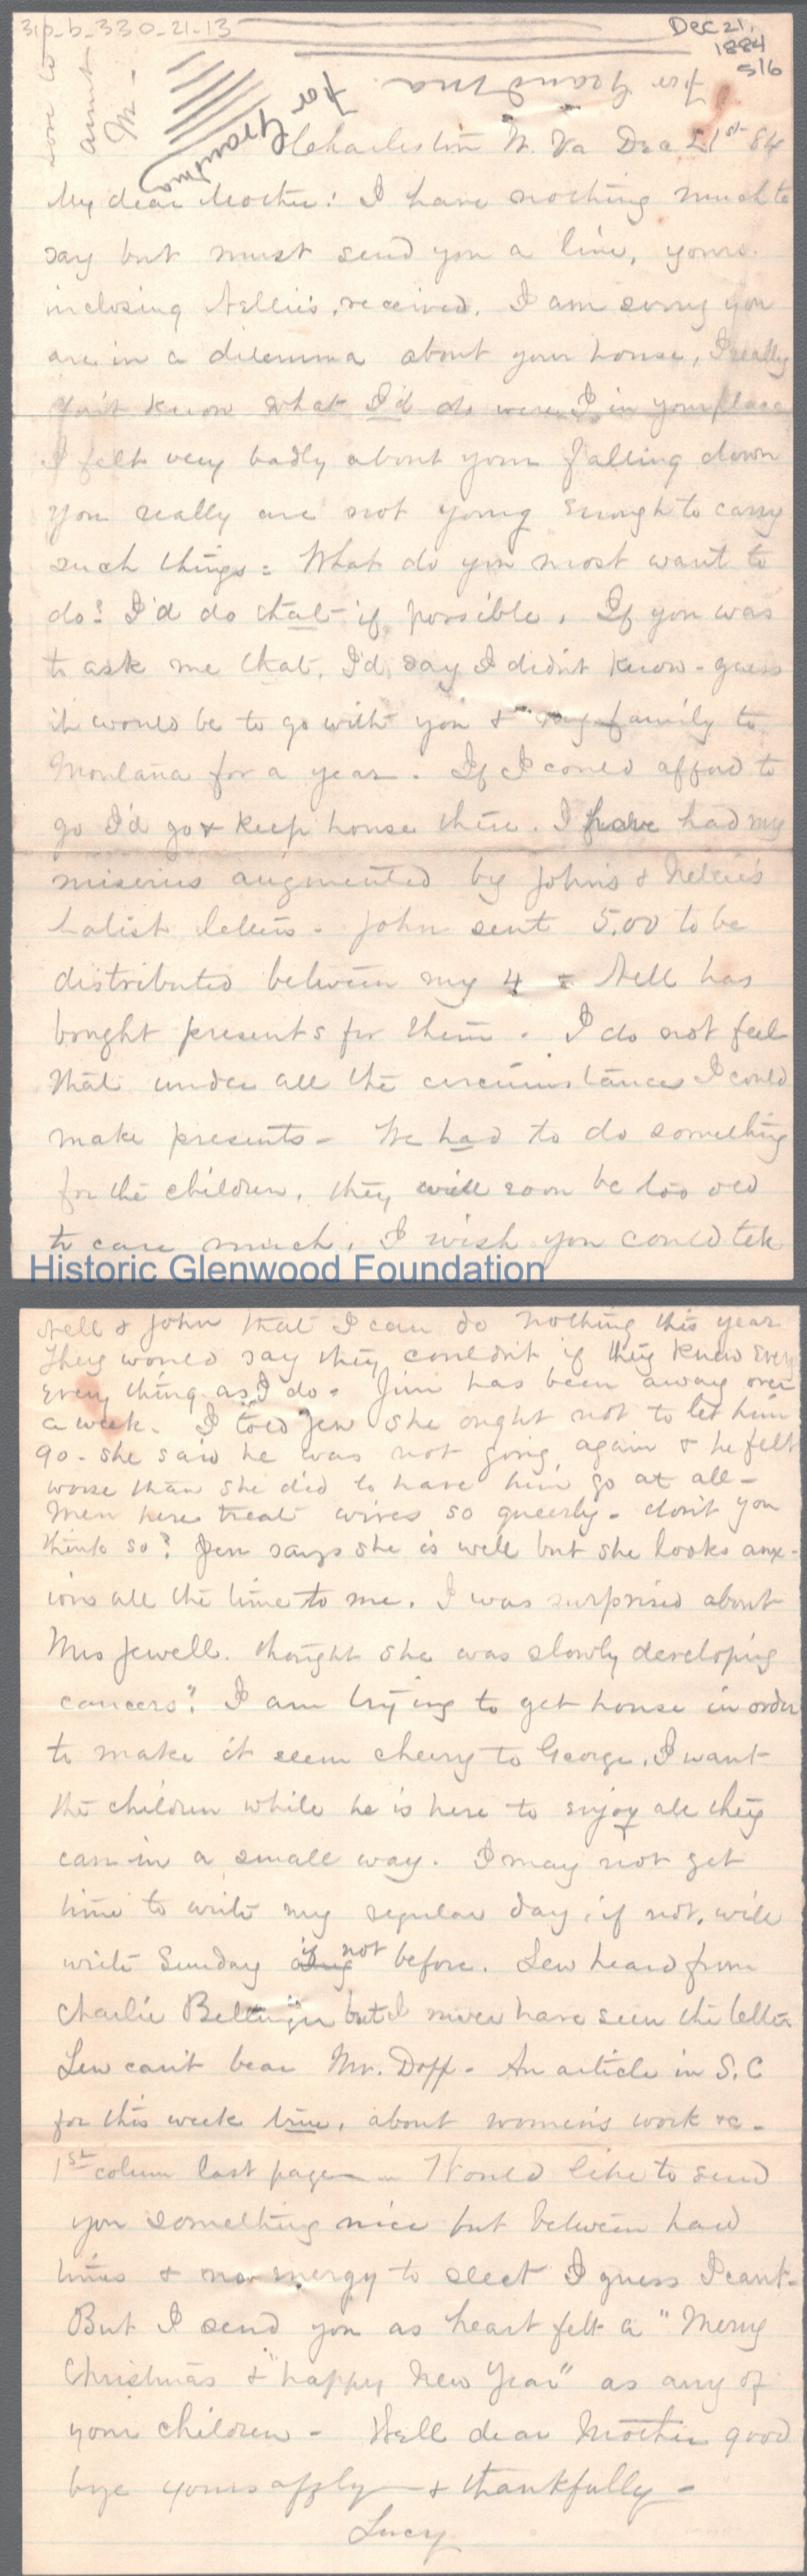 310-b-330-21-13
Dec 21,
1884
516
Love to
aunt
M-
For Grandma
For Grandma
Charleston W. Va Dec 21st 84
My dear Mother: I have nothing much to
say but must send you a line, yours
inclosing Nellie's, received. I am sorry you
are in a dilemma about your house, I really
don't know what I'd do were I in your place
I felt very badly about your falling down
you really are not young enough to carry
such things = What do you most want to
do? I'd do that if possible. If you was
to ask me that, I'd say I didn't know - guess
it would be to go with you & my family to
Montana for a year. If I could afford to
go I'd go & keep house there. I have had my
miseries augmented by John's & Nellie's
latist letters - John sent 5.00 to be
distributed between my 4 & Nell has
bought presents for them. I do not feel
that under all the circumstances I could
make presents - We had to do something
for the children, they will soon be too old
to care much, I wish you could tell
Historic Glenwood Foundation
Nell & John that I can do nothing this year
They would say they couldn't if they knew every
every thing as I do. Jim has been away over
a week. I told Jen she ought not to let him
go - she said he was not going again & he felt
worse than she did to have him go at all -
Men here treat wives so queerly - don't you
think so? Jen says she is well but she looks anx-
ious all the time to me. I was surprised about
Mrs Jewell. thought she was slowly developing
cancers". I am trying to get house in order
to make it seem cheery to George. I want
the children while he is here to enjoy all they
can in a small way. I may not get
time to write my regular day, if not, will
write Sunday if not before. Lew heard from
Charlie but I never have seen the letter
Lew can't bear Mr. Doff - An article in S.C
for this week true, about women's work &c -
1st colum last page - Would like to send
you something nice but between hard
times & no energy to select I guess I cant -
But I send you as heart felt a "Merry
Christmas & "happy New Year" as any of
your children - Well dear Mother good
bye yours affly & thankfully -
Lucy